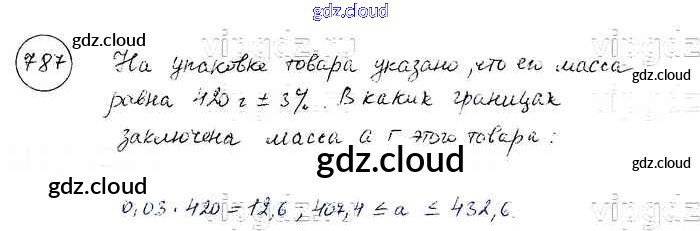 gdz.cloud
787 На упаковке товара указано, что его масса
gdz.cloud
gdz.cloud
равна 420 г ± 3%. В каких границах
заключена масса а г этого товара:
gdz.cloud
gdz.cloud
0,03 · 420 = 12,6 ; 407,4 ≤ a ≤ 432,6.